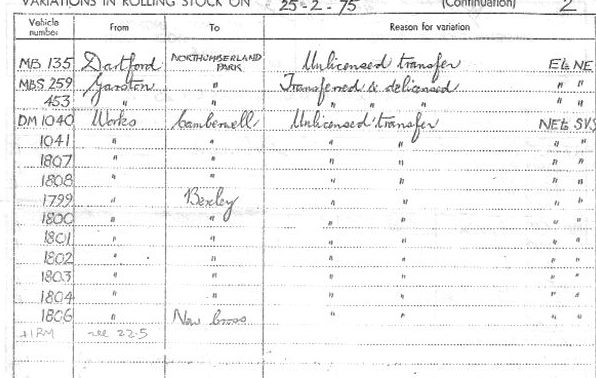 VARIATIONS IN ROLLING STOCK ON 25-2-75 (Continuation) 2
Vehicle number From To Reason for variation
MB 135 Dartford NORTHUMBERLAND PARK Unlicensed transfer EtoNE
MBS 259 Garston " Transferred & delicensed " "
453 " " " " " " "
DM 1040 Works Camberwell Unlicensed transfer NEto SVS
1041 " " " " " "
1807 " " " " " "
1808 " " " " " "
1799 " Bexley " " " "
1800 " " " " " "
1801 " " " " " "
1802 " " " " " "
1803 " " " " " "
1804 " " " " " "
1806 " New Cross " " " "
1RM see 22.5